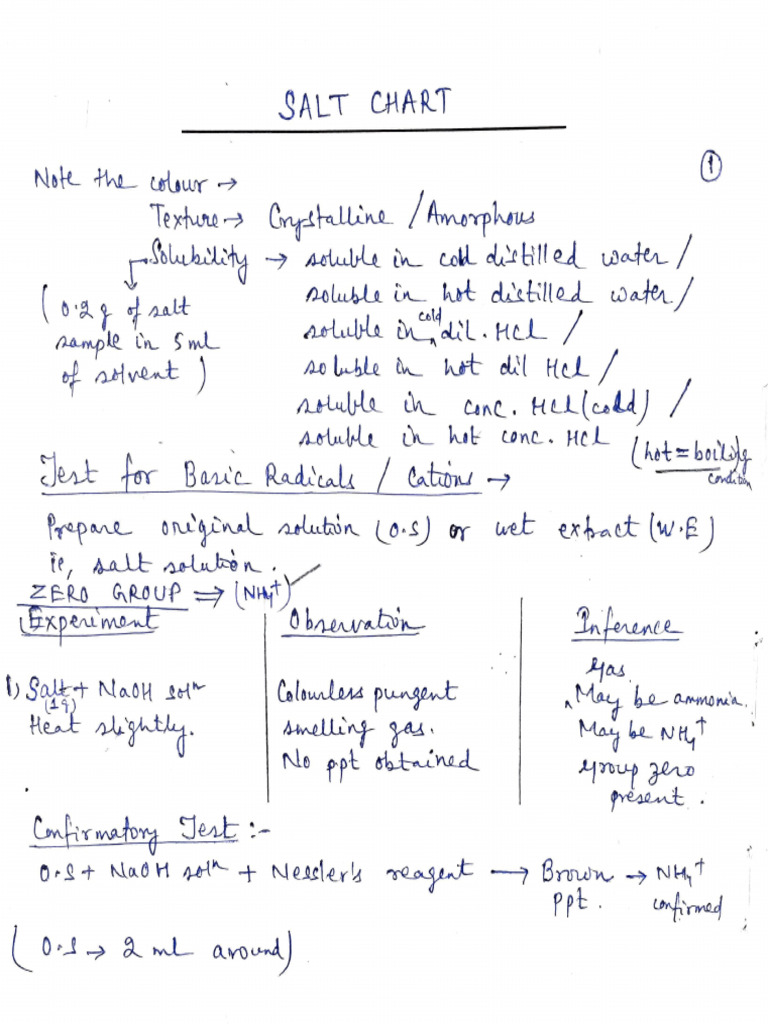 SALT CHART
①
Note the colour →
Texture → Crystalline / Amorphous
Solubility → soluble in cold distilled water /
soluble in hot distilled water /
(0.2 g of salt
sample in 5 ml
of solvent)
soluble in cold dil. HCl /
soluble in hot dil HCl /
soluble in conc. HCl (cold) /
soluble in hot conc. HCl (hot = boiling condition)
Test for Basic Radicals / Cations →
Prepare original solution (O.S) or wet extract (W.E)
ie, salt solution.
ZERO GROUP ⇒ (NH4+)
Experiment | Observation | Inference
1) Salt + NaOH soln
(1g)
Heat slightly.
Colourless pungent
smelling gas.
No ppt obtained
Gas
May be ammonia.
May be NH4+
Group zero
present.
Confirmatory Test :-
O.S + NaOH soln + Nessler's reagent → Brown → NH4+
ppt. confirmed
(O.S → 2 ml around)